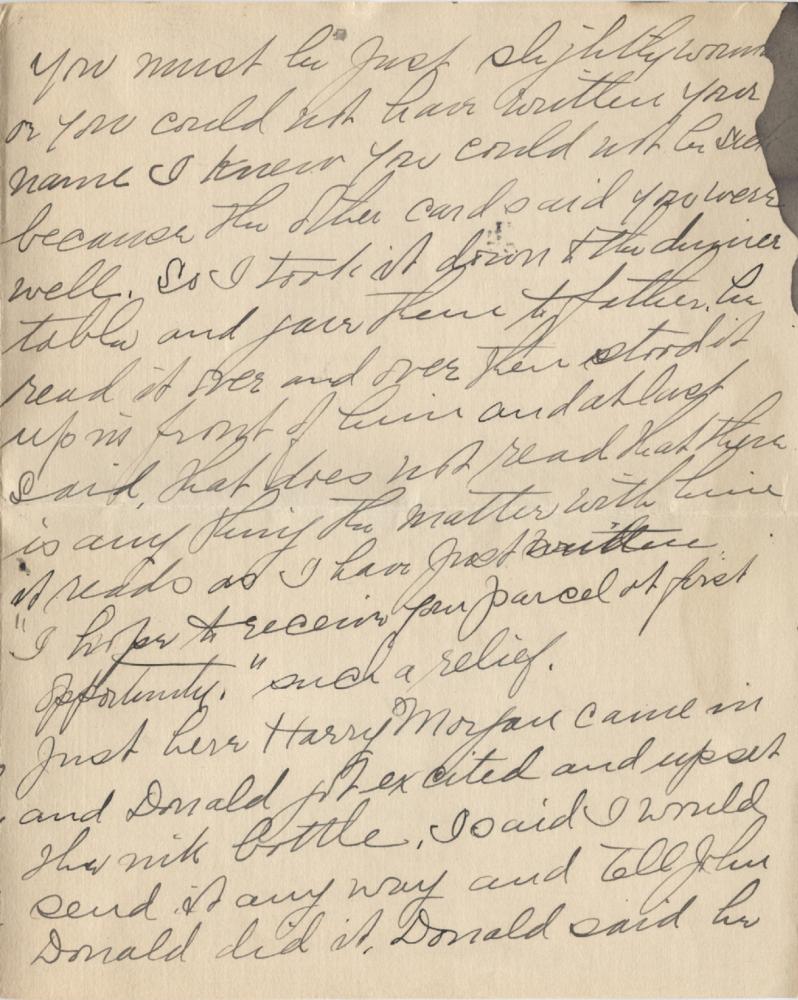 you must be just slightly woun
or you could not have written your
name I knew you could not be sick
because the other card said you were
well. So I took it down to the dinner
table and gave them to father. he
read it over and over then stood it
up in front of him and at last
said, that does not read that there
is any thing the matter with him
it reads as I have just written
"I hope to receive your parcel at first
opportunity." such a relief.
Just here Harry Morgan came in
and Donald got excited and upset
the ink bottle. I said I would
send it any way and tell John
Donald did it. Donald said he